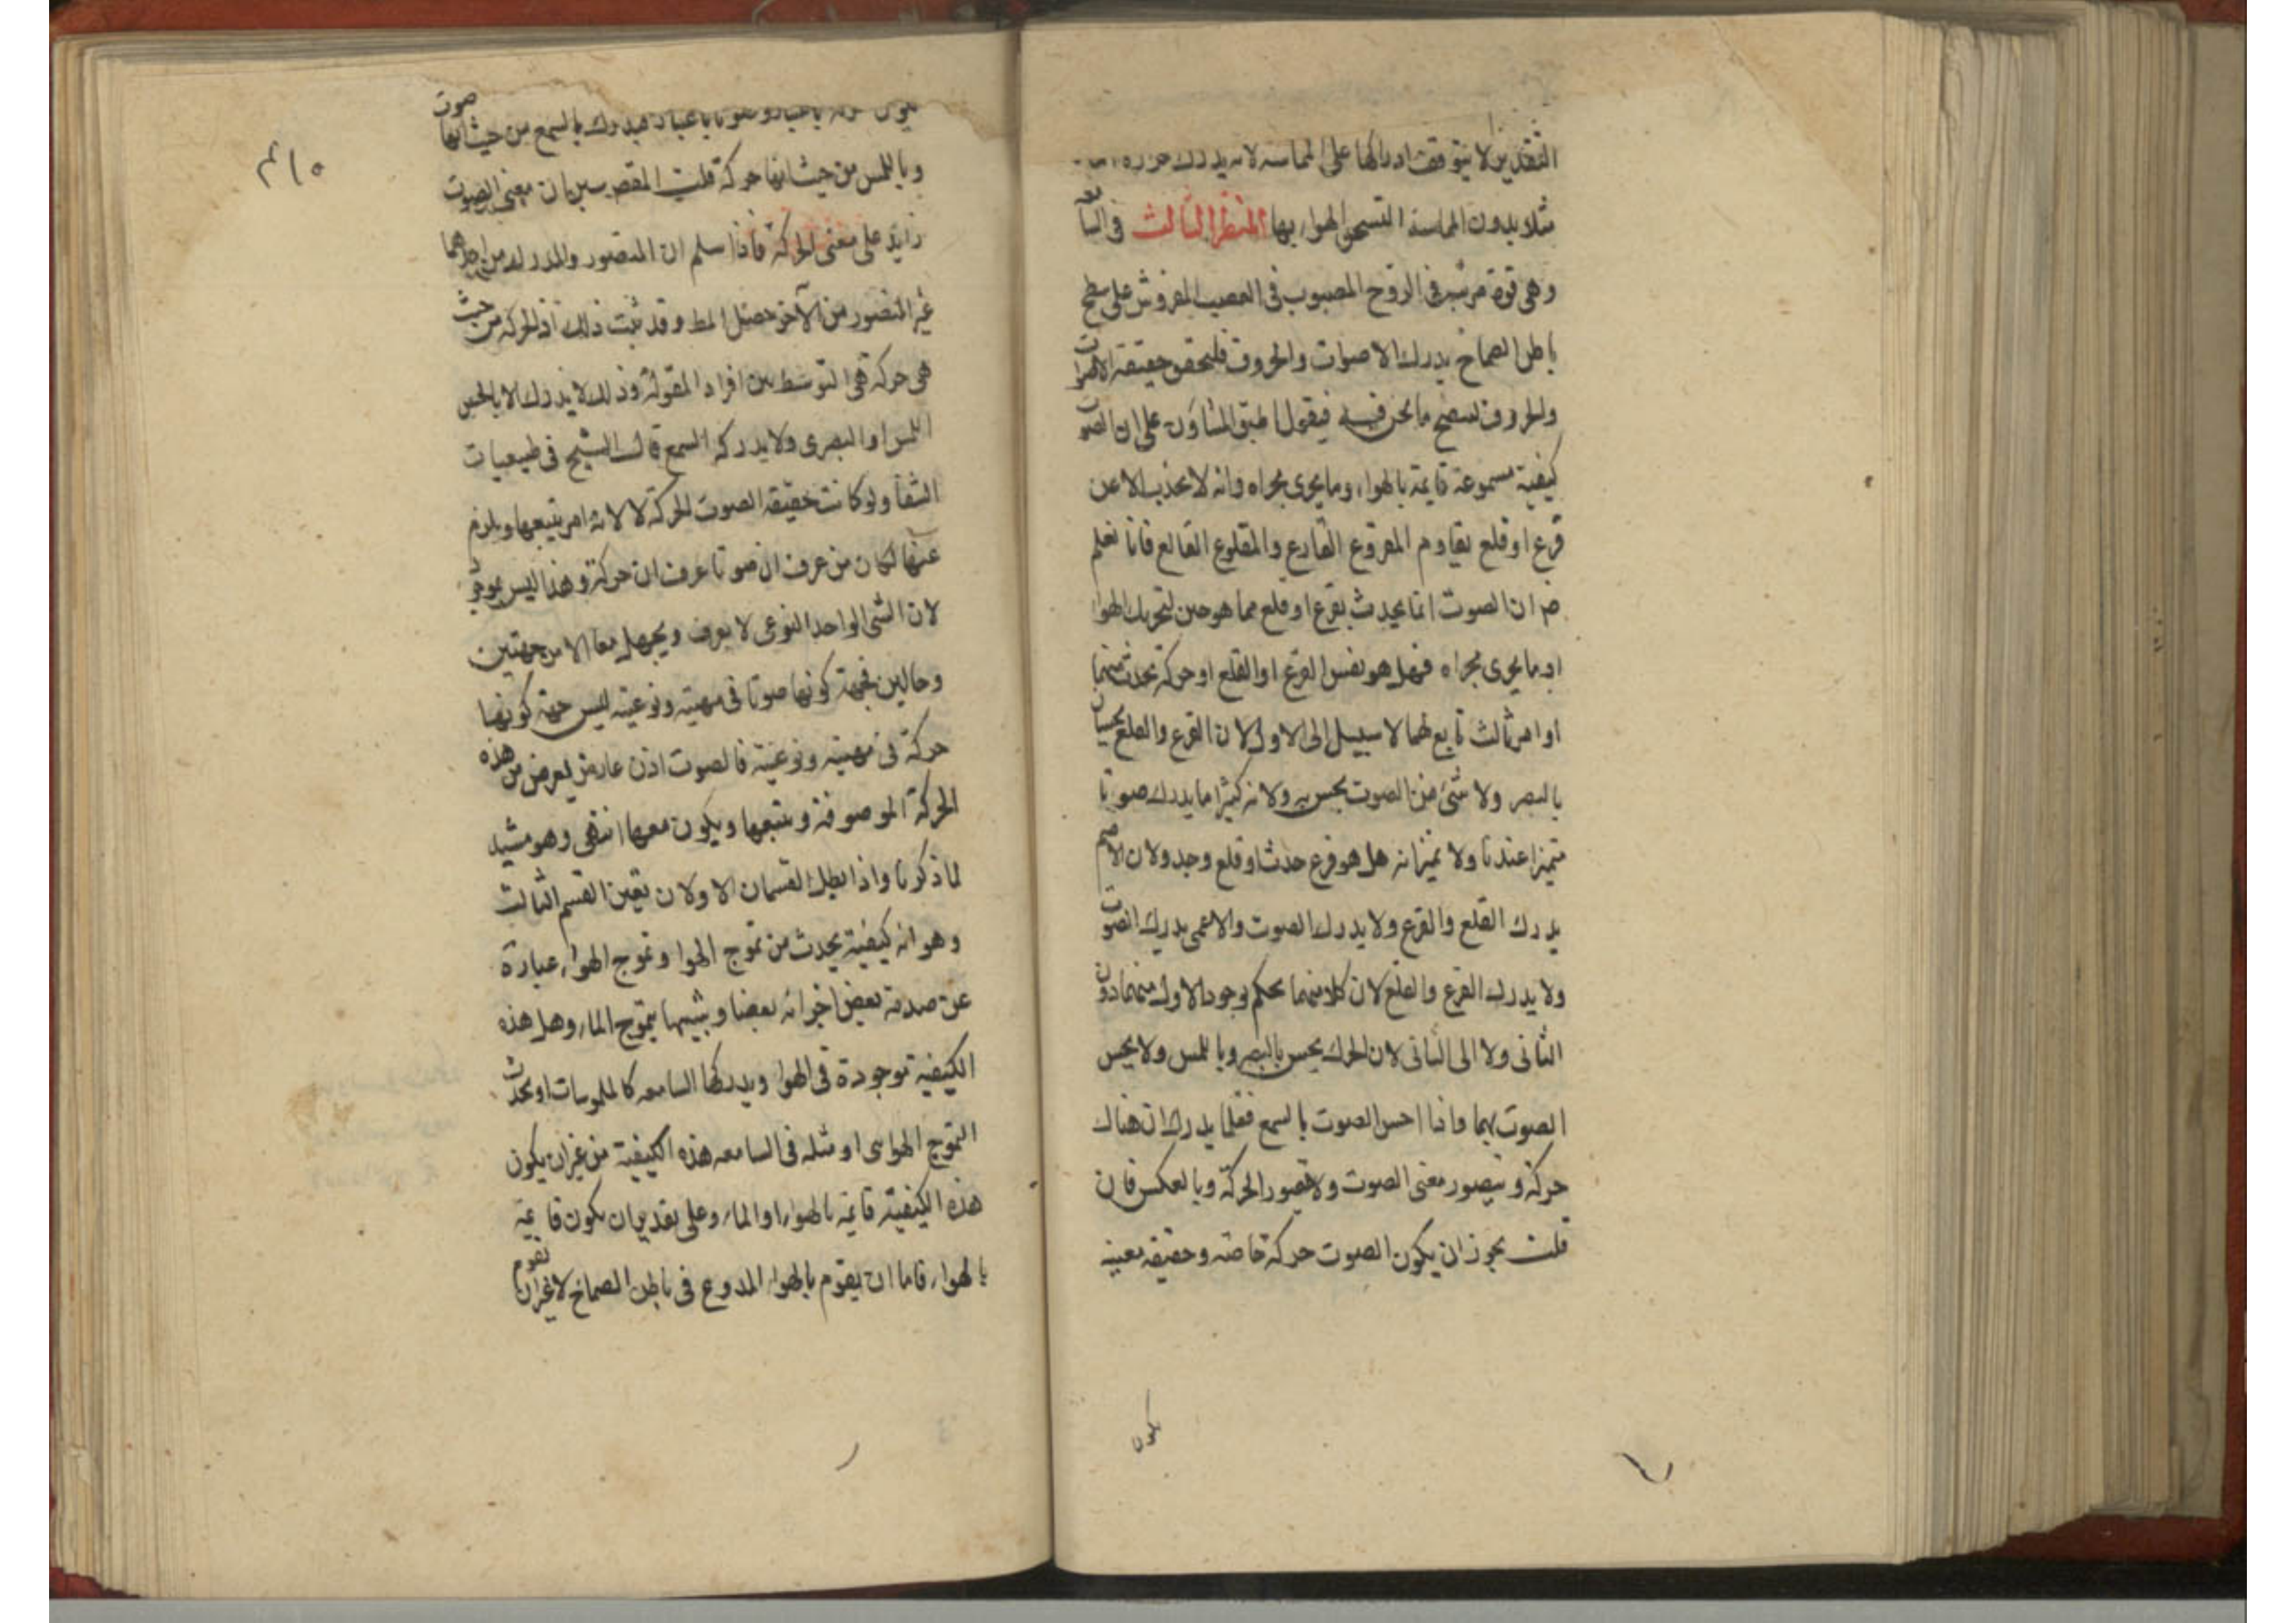 التقديرين لا يتوقف ادراكها على المماسة لانه يدرك حرارة
مثلا بدون المماسة التسخن الهواء بها المنظر الثالث في السامعة
وهي قوة مرتبة في الروح المصبوب في العصب المفروش على سطح
باطن الصماخ يدرك الاصوات والحروف فليحقق حقيقة الاصوات
والحروف ليتضح ما نحن فيه فيقول اطبق المشاؤن على ان الصوت
كيفية مسموعة قايمة بالهواء وما يجرى مجراه وانه لا يحدث الا عن
قرع او قلع يقاوم المقروع القارع والمقلوع القالع فانا نعلم
ض ان الصوت انما يحدث بقرع او قلع مما هو حين لتحريك الهوا
او ما يجرى مجراه فهل هو نفس القرع او القلع او حركة تحدث منهما
او امر ثالث تابع لهما لا سبيل الى الاول لان القرع والقلع يحسان
بالبصر ولا شئ من الصوت يحس به ولانه كثيرا ما يدرك صوتا
متميزا عندنا ولا نميز انه هل هو قرع حدث او قلع وجد ولان الاصم
يدرك القلع والقرع ولا يدرك الصوت والاعمى يدرك الصوت
ولا يدرك القرع والقلع لان كلا منهما يحكم بوجود الاول منهما دون
الثانى ولا الى الثانى لان الحركة يحس بالبصر وباللمس ولا يحس
الصوت بهما واذا احس الصوت بالسمع فقلما يدرك ان هناك
حركة ويتصور معنى الصوت ولا يتصور الحركة وبالعكس فان
قلت يجوز ان يكون الصوت حركة خاصة وحقيقة معينة
يكون
۴۱۵
يكون حركة باعتبار وصوتا باعتبار فيدرك بالسمع من حيث انها صوت
وباللمس من حيث انها حركة قلت المقصود بيان ان معنى الصوت
زايد على معنى الحركة فاذا سلم ان المتصور والمدرك من احدهما
غير المتصور من الآخر حصل المط وقد ثبت ذلك اذ الحركة من حيث
هى حركة هى التوسط بين افراد المقولة وذلك لا يدرك الا بالحس
اللمس او البصرى ولا يدركه السمع قال الشيخ فى طبيعيات
الشفا ولو كانت حقيقة الصوت الحركة لا لانه امر يتبعها ويلزم
عنها لكان من عرف ان صوتا عرف ان حركة وهذا ليس بموجود
لان الشئ الواحد النوعى لا يعرف ويجهل معا الا من جهتين
وحالين فجهة كونها صوتا فى مهيته ونوعيته ليس جهة كونها
حركة فى مهيته ونوعيته فالصوت اذن عارض يعرض من هذه
الحركة الموصوفة ويتبعها ويكون معها انتهى وهو مشيد
لما ذكرنا واذا بطل القسمان الاولان تعين القسم الثالث
وهو انه كيفية يحدث من تموج الهوا وتموج الهواء عبارة
عن صدمة بعض اجزائه بعضا ويشبهها بتموج الماء وهل هذه
الكيفية موجودة فى الهوا ويدركها السامعه كالملموسات او يحدث
التموج الهوائى او مثله فى السامعه هذه الكيفية من غير ان يكون
هذه الكيفية قايمة بالهواء او الماء وعلى تقدير ان يكون قايمة
بالهواء فاما ان يقوم بالهواء المدوع فى باطن الصماخ لا غير ان يقوم